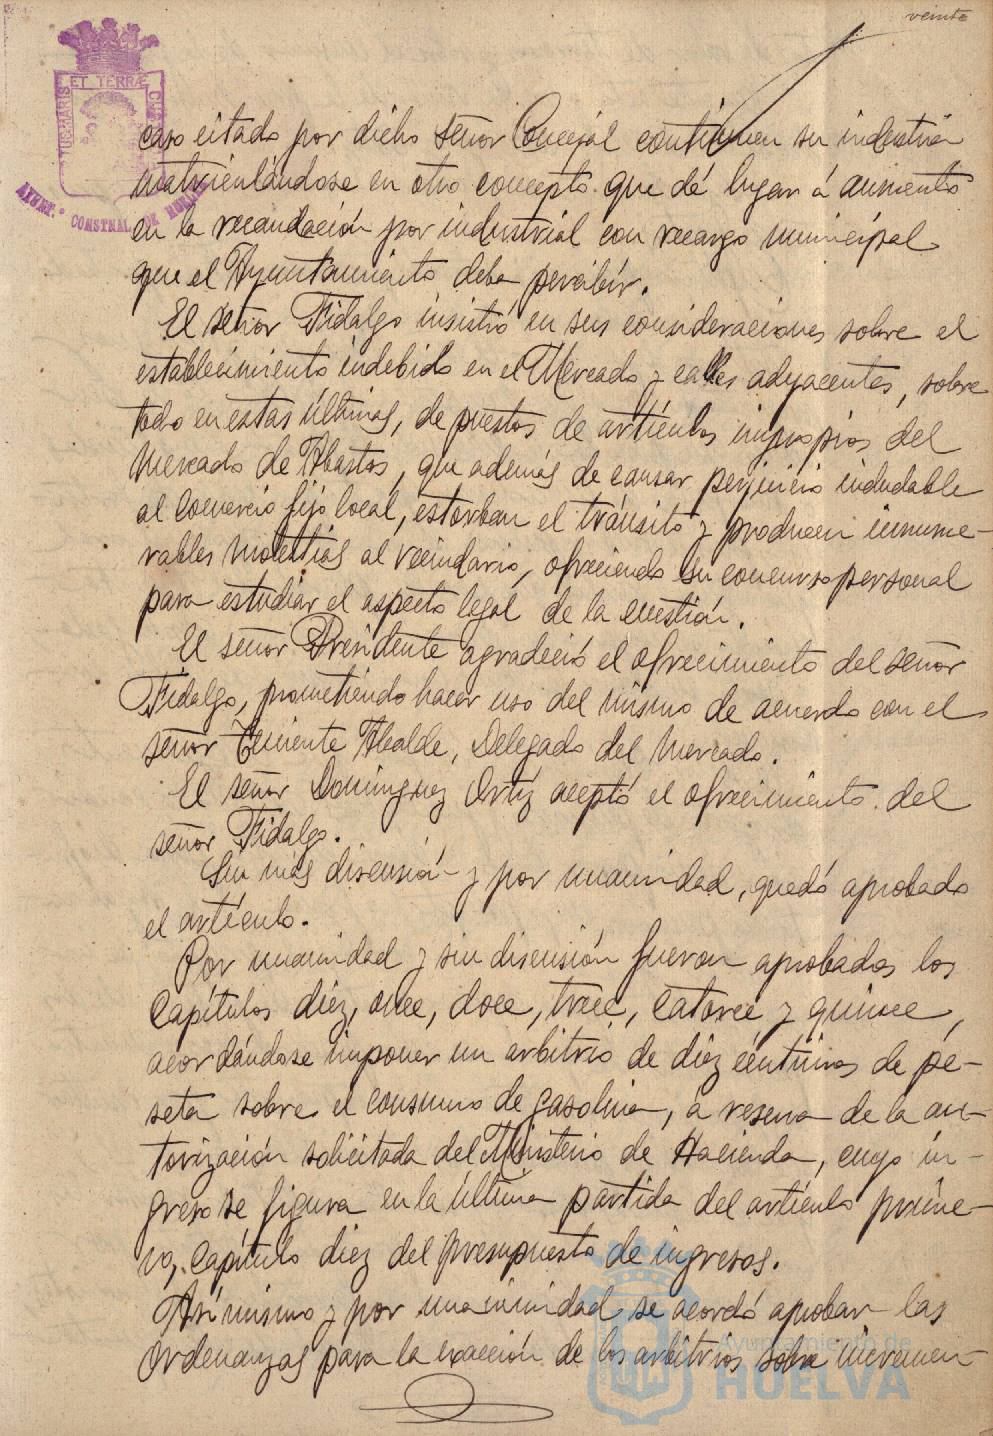 veinte
PORTUS MARIS ET TERRÆ CUSTODIA
AYUNT.º CONSTNAL. DE HUELVA
caso citado por dicho señor Concejal continuen su industria
matriculándose en otro concepto que dé lugar á aumento
en la recaudación por industrial con recargo municipal
que el Ayuntamiento deba percibir.
El señor Fidalgo insistió en sus consideraciones sobre el
establecimiento indebido en el Mercado y calles adyacentes, sobre
todo en estas últimas, de puestos de artículos impropios del
Mercado de Abastos, que además de causar perjuicio indudable
al Comercio fijo local, estorban el tránsito y producen innume-
rables molestias al vecindario, ofreciendo su concurso personal
para estudiar el aspecto legal de la cuestión.
El señor Presidente agradeció el ofrecimiento del señor
Fidalgo, prometiendo hacer uso del mismo de acuerdo con el
señor Teniente Alcalde, Delegado del Mercado.
El señor Dominguez Ortiz aceptó el ofrecimiento del
señor Fidalgo.
Sin más discusión y por unanimidad, quedó aprobado
el artículo.
Por unanimidad y sin discusión fueron aprobados los
Capítulos diez, once, doce, trece, catorce y quince,
acordándose imponer un arbitrio de diez céntimos de pe-
seta sobre el consumo de gasolina, a reserva de la au-
torización solicitada del Ministerio de Hacienda, cuyo in-
greso se figura en la última partida del artículo prime-
ro, Capítulo diez del presupuesto de ingresos.
Asímismo y por unanimidad se acordó aprobar las
Ordenanzas para la exacción de los arbitrios sobre incremen-
Ayuntamiento de
HUELVA